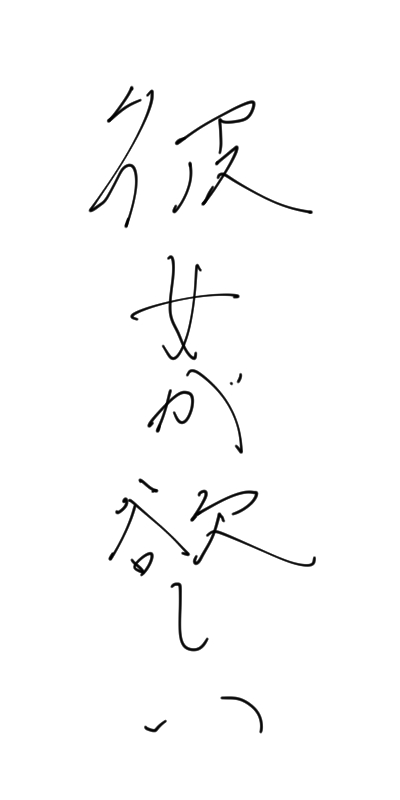 彼女が欲しい